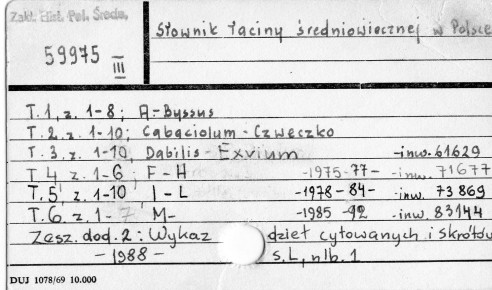 Zakł. Hist. Pol. Średn.
59975
III
Słownik łaciny średniowiecznej w Polsce
T. 1, z. 1-8; A-Byssus
T. 2, z. 1-10; Cabaciolum - Czweczko
T. 3, z. 1-10, Dabilis - Exvium -inw. 61629
T 4 z. 1-6; F-H -1975-77- -inw. 71677
T. 5, z. 1-10 I-L -1978-84- -inw. 73869
T. 6, z. 1-7 M- -1985-92 -inw. 83144
Zesz. dod. 2: Wykaz dzieł cytowanych i skrótów
-1988- s. L, nlb. 1
DUJ 1078/69 10.000